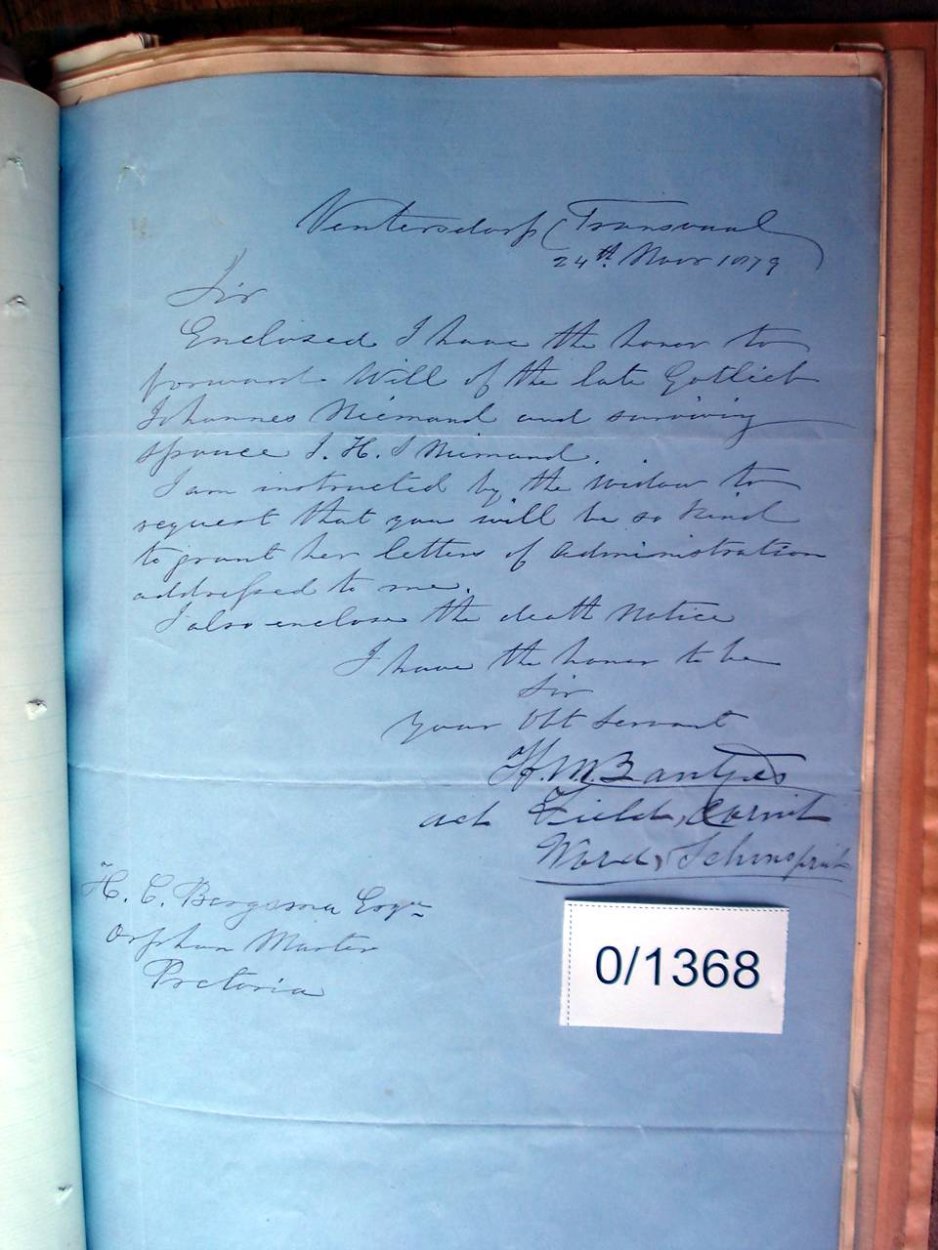 Ventersdorp (Transvaal
24th Novr 1879
Sir
Enclosed I have the honor to
forward Will of the late Gotlieb
Johannes Niemand and surviving
spouce J. H. S Niemand.
I am instructed by the widow to
request that you will be so kind
to grant her letters of administration
addressed to me.
I also enclose the death notice
I have the honor to be
Sir
your Obt Servant
H. M.
act Field, Cornet
Ward,
H. C. Bergsma Esqre
Orphan Master
Pretoria
0/1368